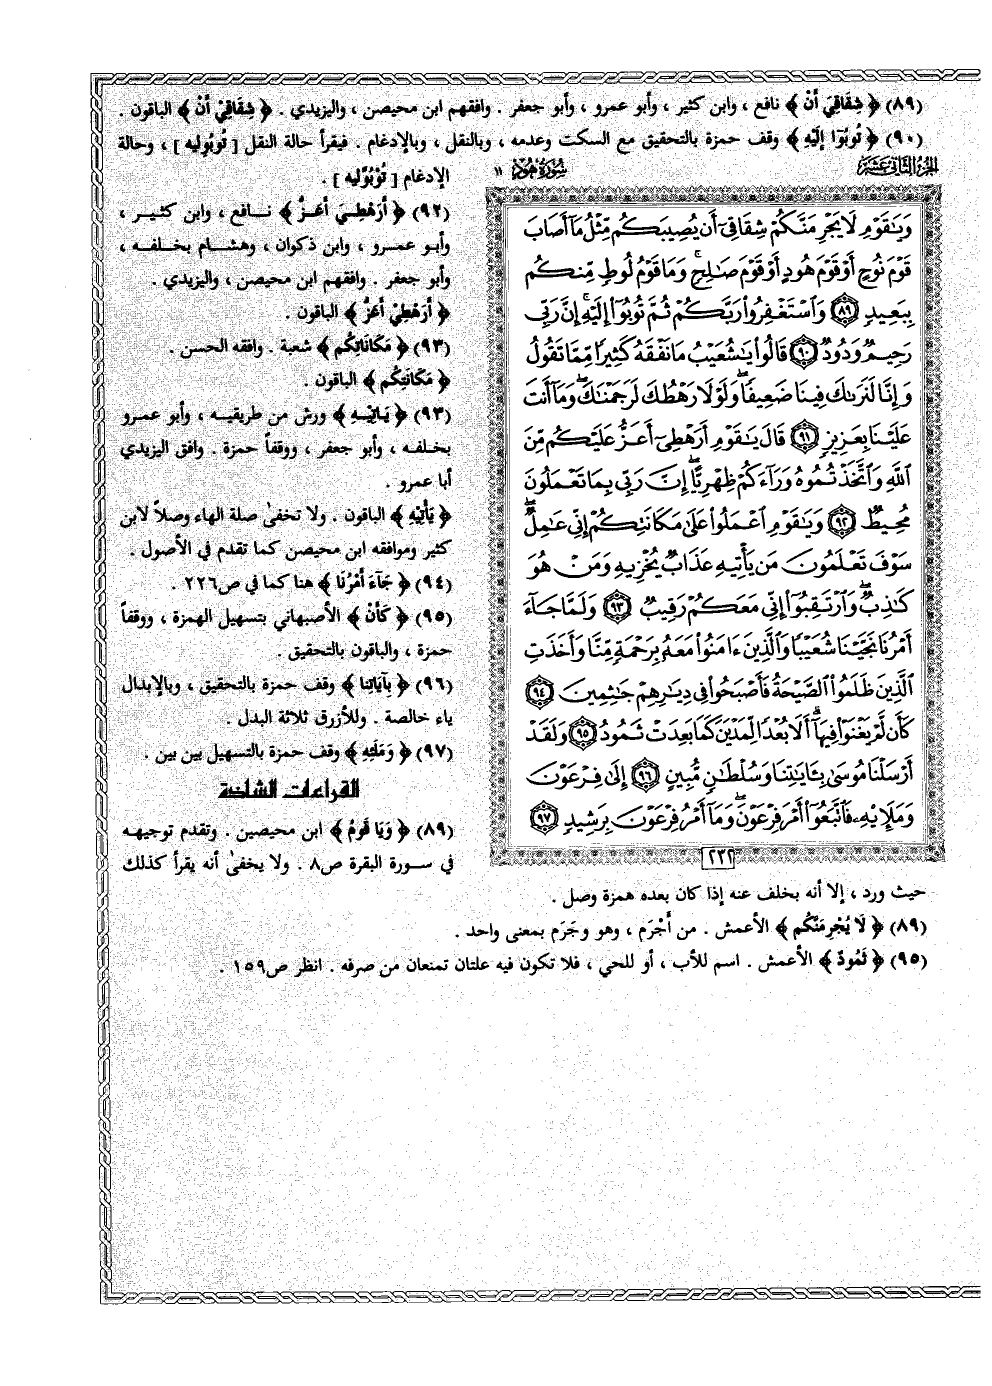 (٨٩) ﴿ شِقَاقِيَ أَنْ ﴾ نافع ، وابن كثير ، وأبو عمرو ، وأبو جعفر . وافقهم ابن محيصن ، واليزيدي . ﴿ شِقَاقِيْ أَنْ ﴾ الباقون .
(٩٠) ﴿ تُوبُوٓا إِلَيْهِ ﴾ وقف حمزة بالتحقيق مع السكت وعدمه ، وبالنقل ، وبالإدغام . فيقرأ حالة النقل [ تُوبُولِيه ] ، وحالة
الإدغام [ تُوبُوِّليه ] .
(٩٢) ﴿ أَرَهْطِيَ أَعَزُّ ﴾ نافع ، وابن كثير ،
وأبو عمرو ، وابن ذكوان ، وهشام بخلفه ،
وأبو جعفر . وافقهم ابن محيصن ، واليزيدي .
﴿ أَرَهْطِيْ أَعَزُّ ﴾ الباقون .
(٩٣) ﴿ مَكَانَاتِكُم ﴾ شعبة . وافقه الحسن .
﴿ مَكَانَتِكُم ﴾ الباقون .
(٩٣) ﴿ يَاتِيهِ ﴾ ورش من طريقيه ، وأبو عمرو
بخلفه ، وأبو جعفر ، ووقفاً حمزة . وافق اليزيدي
أبا عمرو .
﴿ يَأْتِيهِ ﴾ الباقون . ولا تخفىٰ صلة الهاء وصلاً لابن
كثير وموافقه ابن محيصن كما تقدم في الأصول .
(٩٤) ﴿ جَآءَ أَمْرُنَا ﴾ هنا كما في ص٢٢٦ .
(٩٥) ﴿ كَأَنْ ﴾ الأصبهاني بتسهيل الهمزة ، ووقفاً
حمزة ، والباقون بالتحقيق .
(٩٦) ﴿ بِآيَاتِنا ﴾ وقف حمزة بالتحقيق ، وبالإبدال
ياء خالصة . وللأزرق ثلاثة البدل .
(٩٧) ﴿ وَمَلَئِهِ ﴾ وقف حمزة بالتسهيل بين بين .
القراءات الشاذة
(٨٩) ﴿ وَيَا قَومُ ﴾ ابن محيصين . وتقدم توجيهه
في سورة البقرة ص٨ . ولا يخفىٰ أنه يقرأ كذلك
حيث ورد ، إلا أنه بخلف عنه إذا كان بعده همزة وصل .
(٨٩) ﴿ لَا يُجْرِمَنَّكُم ﴾ الأعمش . من أَجْرَم ، وهو وجَرَم بمعنى واحد .
(٩٥) ﴿ ثَمُودٌ ﴾ الأعمش . اسم للأب ، أو للحي ، فلا تكون فيه علتان تمنعان من صرفه . انظر ص١٥٩ .
الجزء الثاني عشر
سُورَةُ هُودٍ ١١
وَيَٰقَوْمِ لَا يَجْرِمَنَّكُمْ شِقَاقِىٓ أَن يُصِيبَكُم مِّثْلُ مَآ أَصَابَ
قَوْمَ نُوحٍ أَوْ قَوْمَ هُودٍ أَوْ قَوْمَ صَٰلِحٍ ۚ وَمَا قَوْمُ لُوطٍ مِّنكُم
بِبَعِيدٍ ٨٩ وَٱسْتَغْفِرُوا۟ رَبَّكُمْ ثُمَّ تُوبُوٓا۟ إِلَيْهِ ۚ إِنَّ رَبِّى
رَحِيمٌ وَدُودٌ ٩٠ قَالُوا۟ يَٰشُعَيْبُ مَا نَفْقَهُ كَثِيرًا مِّمَّا تَقُولُ
وَإِنَّا لَنَرَىٰكَ فِينَا ضَعِيفًا ۖ وَلَوْلَا رَهْطُكَ لَرَجَمْنَٰكَ ۖ وَمَآ أَنتَ
عَلَيْنَا بِعَزِيزٍ ٩١ قَالَ يَٰقَوْمِ أَرَهْطِىٓ أَعَزُّ عَلَيْكُم مِّنَ
ٱللَّهِ وَٱتَّخَذْتُمُوهُ وَرَآءَكُمْ ظِهْرِيًّا ۖ إِنَّ رَبِّى بِمَا تَعْمَلُونَ
مُحِيطٌ ٩٢ وَيَٰقَوْمِ ٱعْمَلُوا۟ عَلَىٰ مَكَانَتِكُمْ إِنِّى عَٰمِلٌ ۖ
سَوْفَ تَعْلَمُونَ مَن يَأْتِيهِ عَذَابٌ يُخْزِيهِ وَمَنْ هُوَ
كَٰذِبٌ ۖ وَٱرْتَقِبُوٓا۟ إِنِّى مَعَكُمْ رَقِيبٌ ٩٣ وَلَمَّا جَآءَ
أَمْرُنَا نَجَّيْنَا شُعَيْبًا وَٱلَّذِينَ ءَامَنُوا۟ مَعَهُۥ بِرَحْمَةٍ مِّنَّا وَأَخَذَتِ
ٱلَّذِينَ ظَلَمُوا۟ ٱلصَّيْحَةُ فَأَصْبَحُوا۟ فِى دِيَٰرِهِمْ جَٰثِمِينَ ٩٤
كَأَن لَّمْ يَغْنَوْا۟ فِيهَآ ۗ أَلَا بُعْدًا لِّمَدْيَنَ كَمَا بَعِدَتْ ثَمُودُ ٩٥ وَلَقَدْ
أَرْسَلْنَا مُوسَىٰ بِـَٔايَٰتِنَا وَسُلْطَٰنٍ مُّبِينٍ ٩٦ إِلَىٰ فِرْعَوْنَ
وَمَلَإِيهِۦ فَٱتَّبَعُوٓا۟ أَمْرَ فِرْعَوْنَ ۖ وَمَآ أَمْرُ فِرْعَوْنَ بِرَشِيدٍ ٩٧
٢٣٢